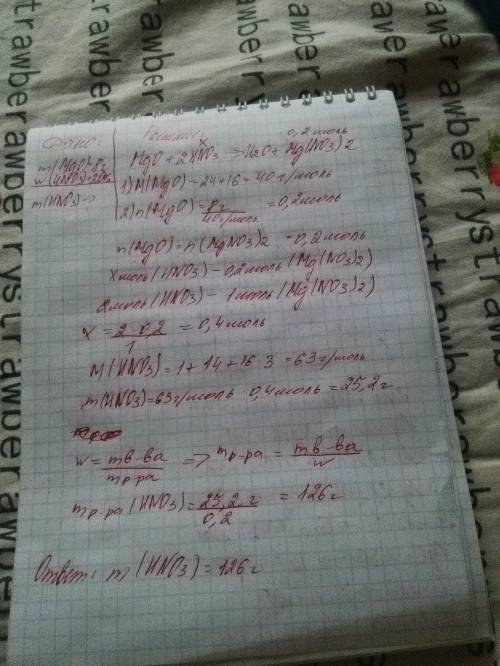 Дано:
m(MgO)=8г
w(HNO3)=20%
m(HNO3)-?
Решение:
0,2 моль
x
MgO + 2HNO3 → H2O + Mg(NO3)2
1) M(MgO) = 24+16 = 40 г/моль
2) n(MgO) = 8 г / 40 г/моль = 0,2 моль
n(MgO) = n(MgNO3)2 = 0,2 моль
x моль (HNO3) - 0,2 моль (Mg(NO3)2)
2 моль (HNO3) - 1 моль (Mg(NO3)2)
x = 2·0,2 / 1 = 0,4 моль
M(HNO3) = 1 + 14 + 16·3 = 63 г/моль
m(HNO3) = 63 г/моль · 0,4 моль = 25,2 г
w = mв-ва / mр-ра => mр-ра = mв-ва / w
mр-ра (HNO3) = 25,2 г / 0,2 = 126 г
Ответ: m(HNO3) = 126 г